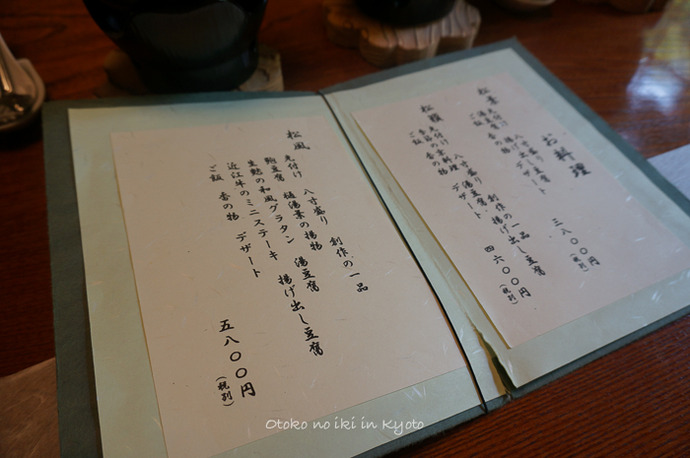 お料理
先付け 八寸盛り
デザート
ご飯 香の物
三八〇〇円
（税別）
先付け 八寸盛り 創作の一品
湯豆腐 揚げ出し豆腐
ご飯 香の物 デザート
四六〇〇円
（税別）
松風
先付け 八寸盛り 創作の一品
樋湯葉の揚物 湯豆腐 揚げ出し豆腐
生麩の和風グラタン
近江牛のミニステーキ
ご飯 香の物 デザート
五八〇〇円
（税別）
Otoko no iki in Kyoto